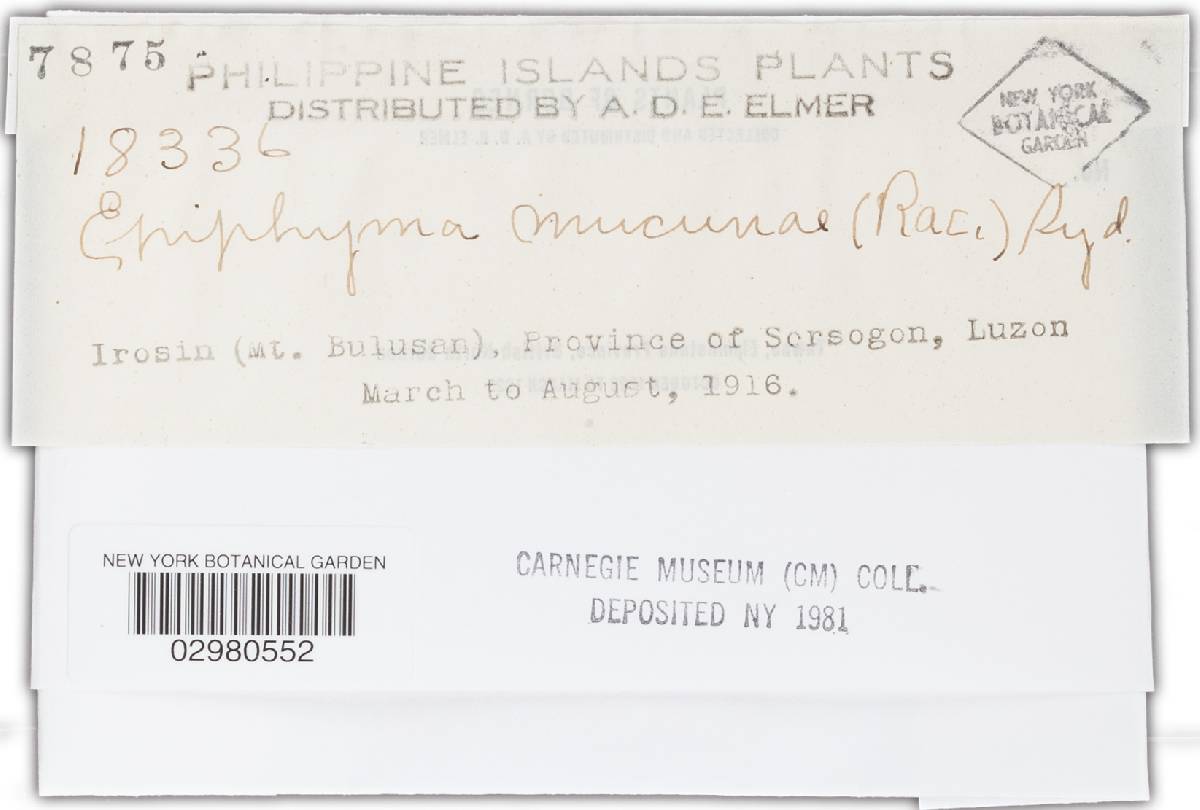 7875
PHILIPPINE ISLANDS PLANTS
DISTRIBUTED BY A. D. E. ELMER
NEW YORK
BOTANICAL
GARDEN
18336
Epiphyma mucunae (Rac.) Syd.
Irosin (Mt. Bulusan), Province of Sorsogon, Luzon
March to August, 1916.
NEW YORK BOTANICAL GARDEN
02980552
CARNEGIE MUSEUM (CM) COLL.
DEPOSITED NY 1981